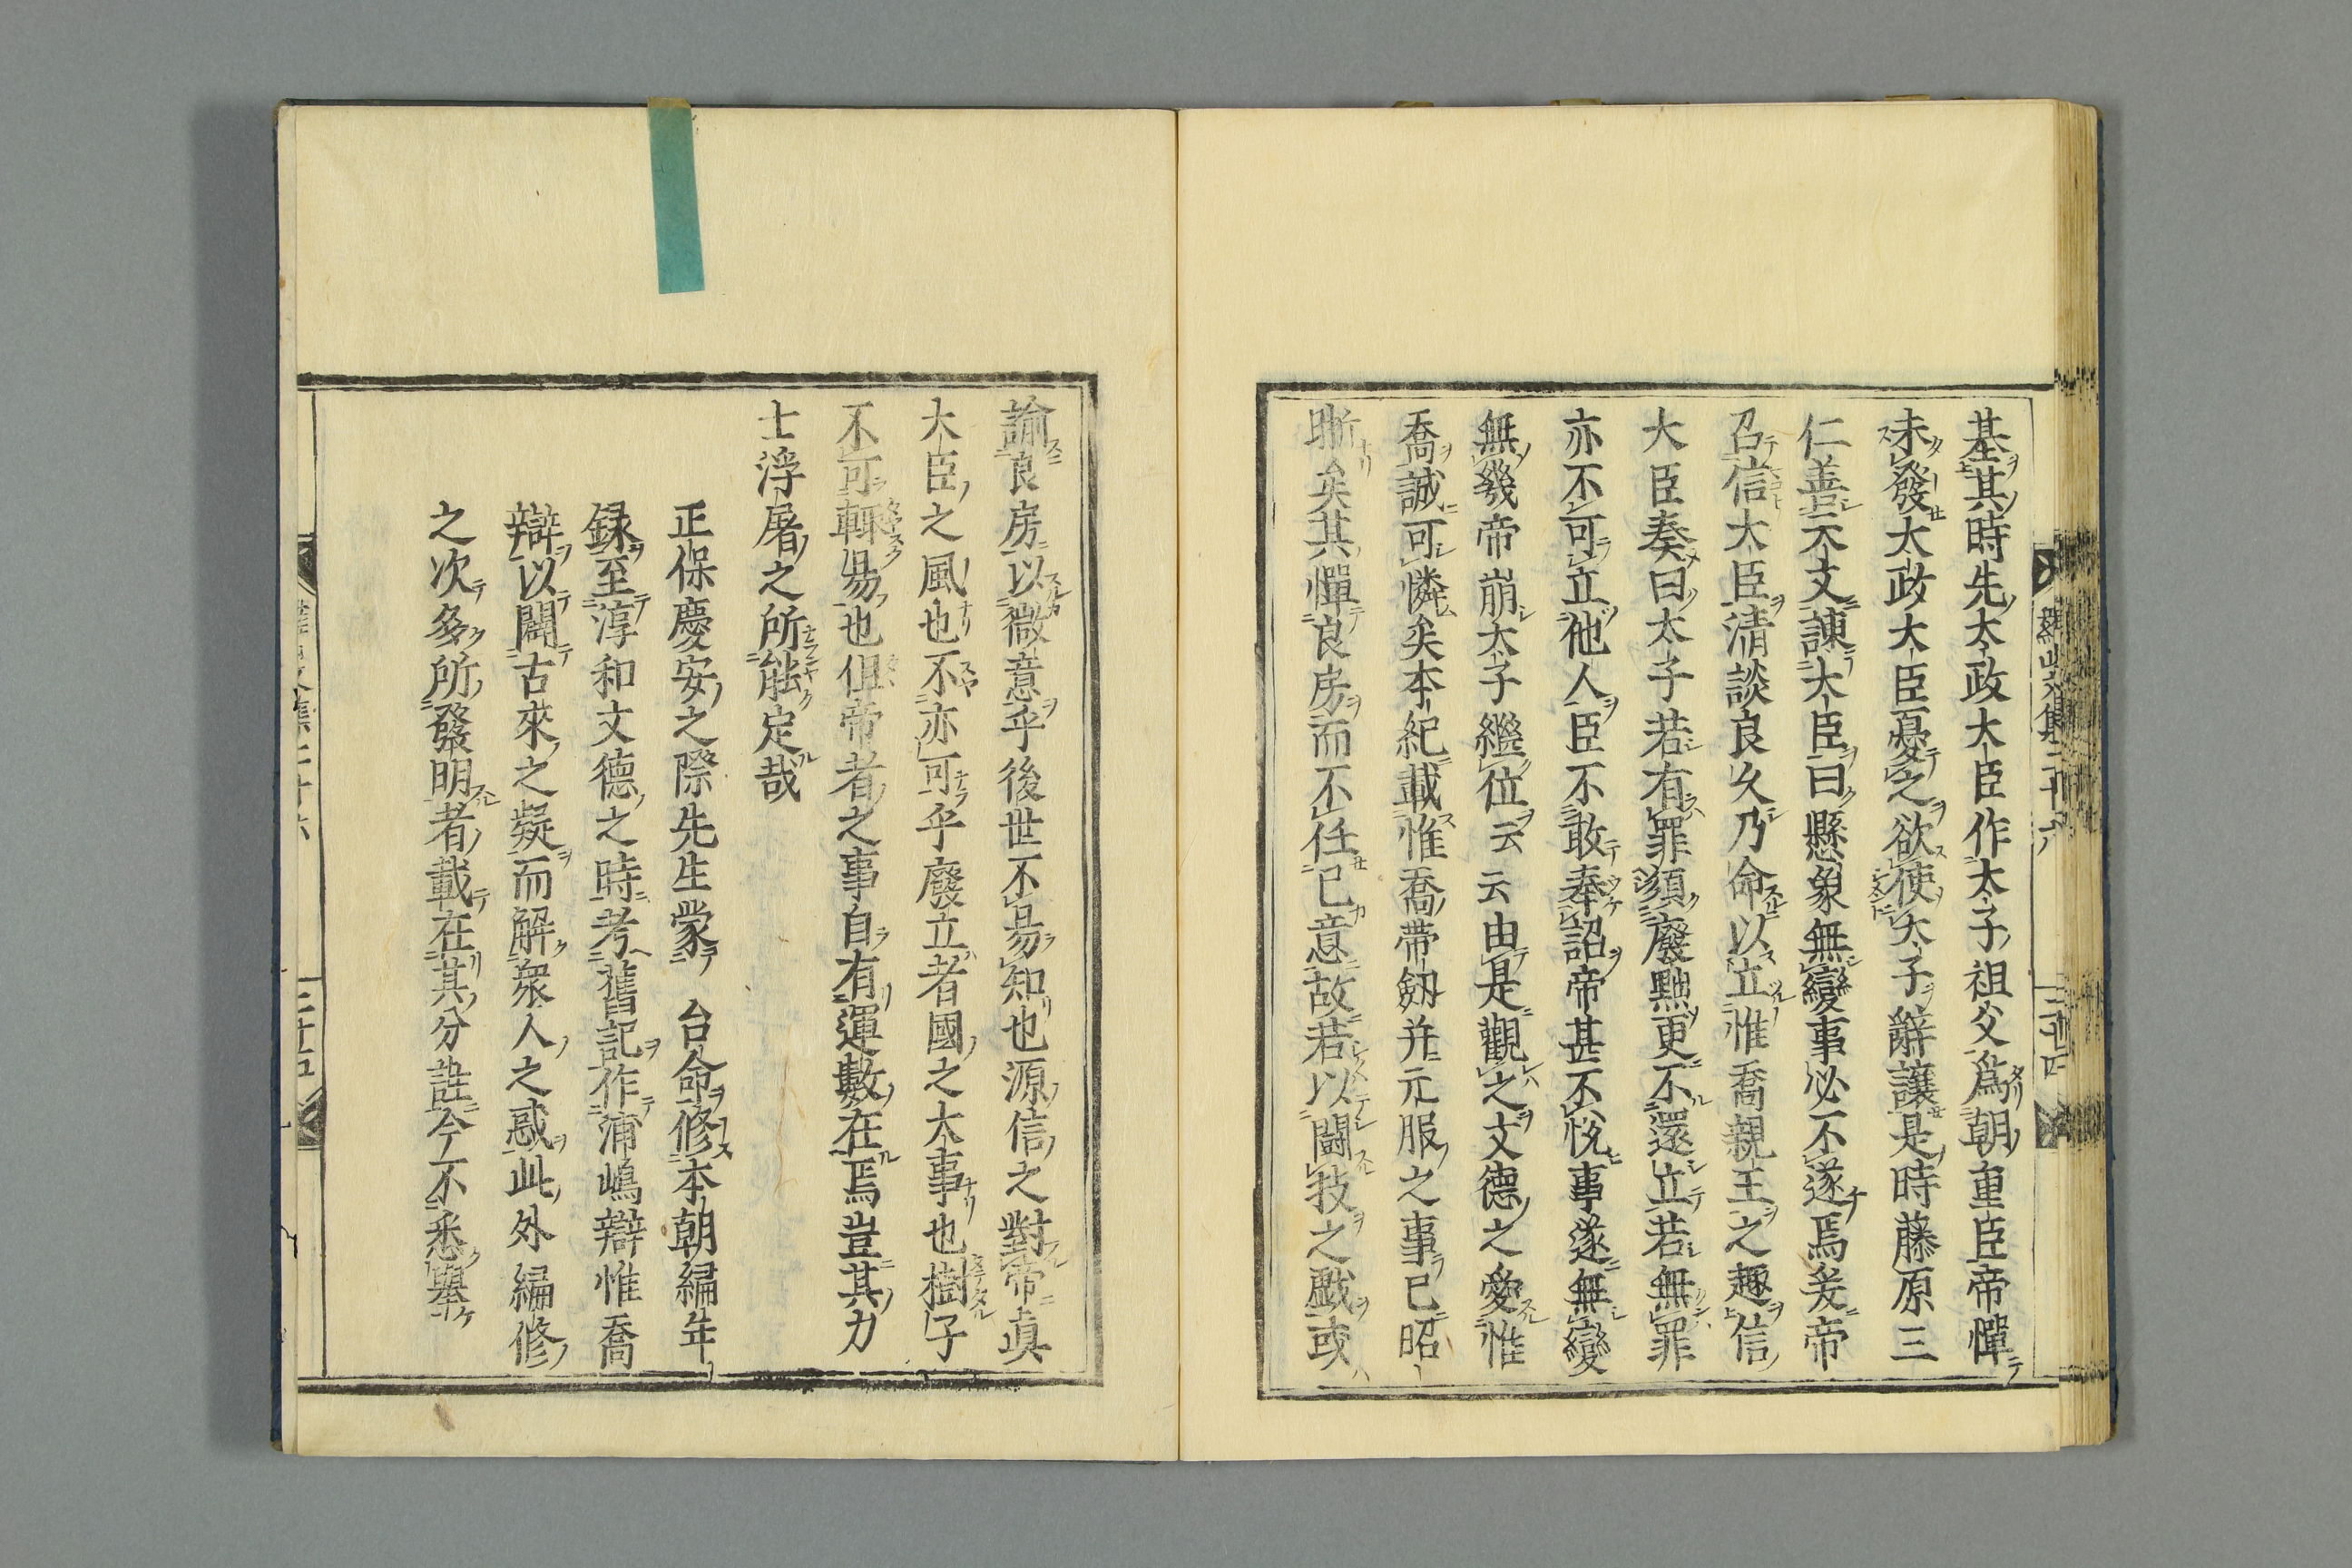 基其時先太政大臣作太子祖父爲朝重臣帝憚
未發太政大臣憂之欲使太子辭讓是時藤原三
仁善天文諫大臣曰懸象無變事必不遂焉爰帝
召信大臣清談良久乃命以立惟喬親王之趣信
大臣奏曰太子若有罪須廢黜更不還立若無罪
亦不可立他人臣不敢奉詔帝甚不悅事遂無變
無幾帝崩太子繼位云云由是觀之文德之愛惟
喬誠可憐矣本紀載惟喬帶劔并元服之事已昭
晰矣其憚良房而不任己意故若以鬭技之戲或
諭良房以微意乎後世不易知也源信之對帝眞
大臣之風也不亦可乎廢立者國之大事也樹子
不可輙易也但帝者之事自有運數在焉豈其力
士浮屠之所能定哉
正保慶安之際先生蒙　台命修本朝編年
録至淳和文德之時考舊記作浦嶋辯惟喬
辯以闢古來之疑而解衆人之惑此外編修
之次多所發明者載在其分註今不悉舉